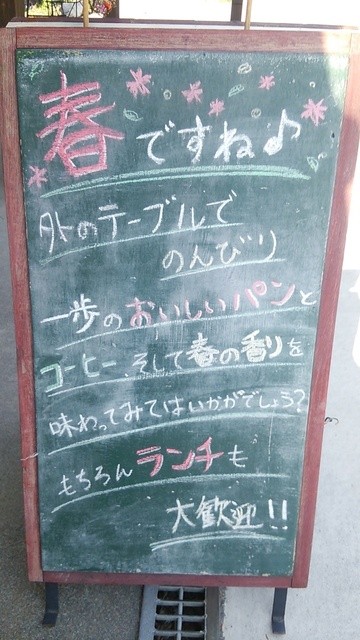 春ですね♪
外のテーブルで
のんびり
一歩のおいしいパンと
コーヒー、そして春の香りを
味わってみてはいかがでしょう?
もちろんランチも
大歓迎!!